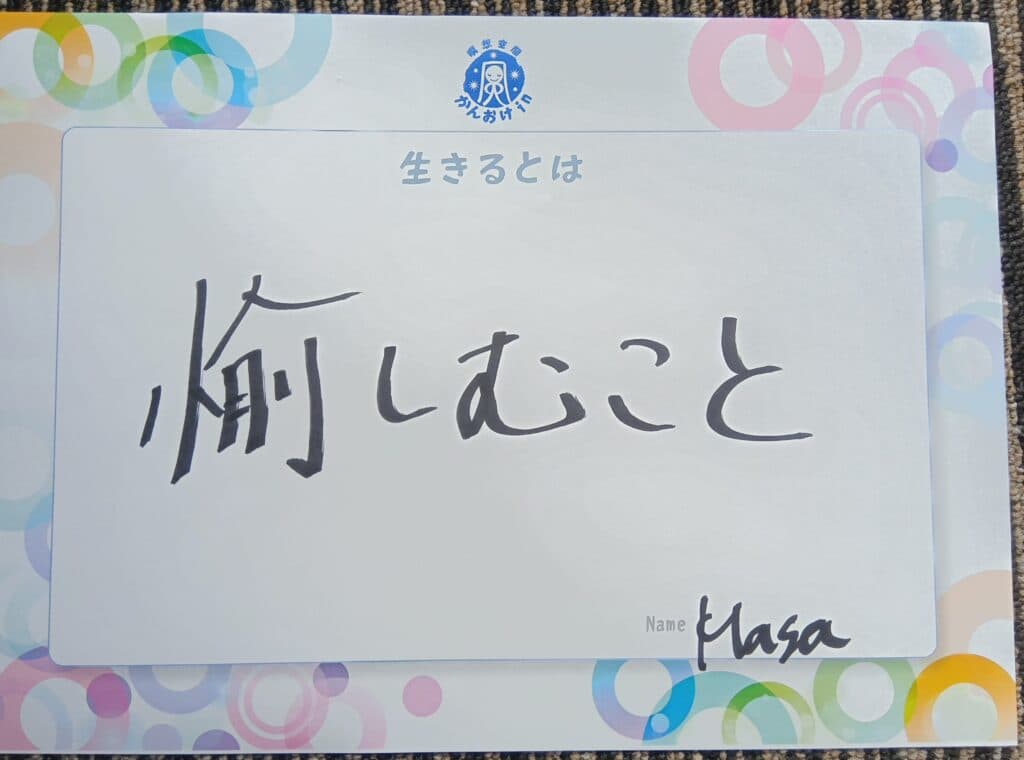 瞑想空間
かんおけin
生きるとは
愉しむこと
Name Masa